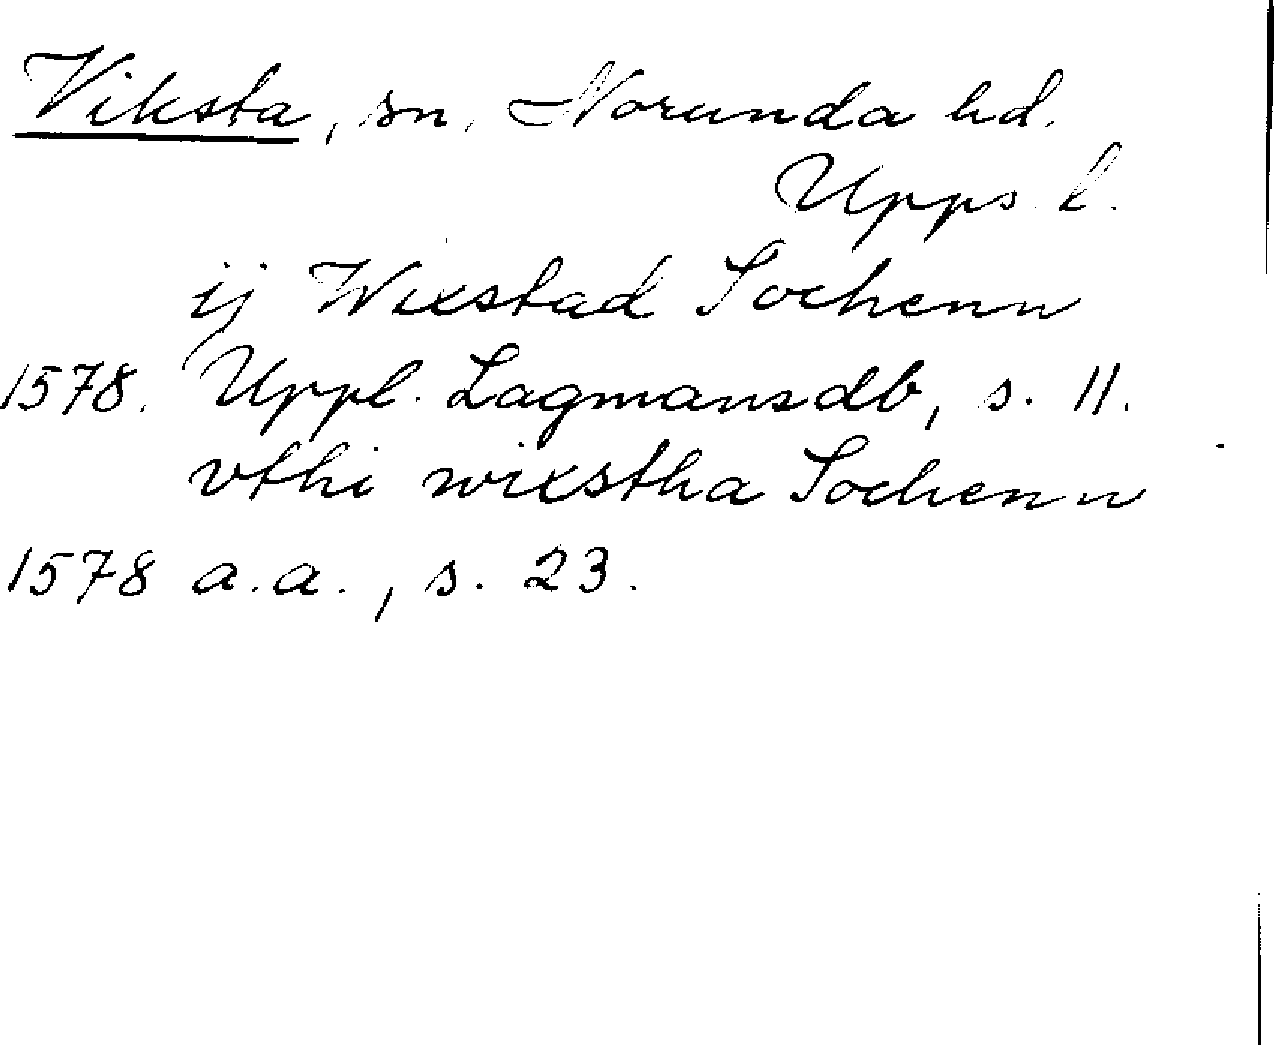 Viksta, sn, Norunda hd.
Upps. l.
ij Wixstad Sochenn
1578. Uppl. Lagmansdb, s. 11.
vthi wixstha Sochenn
1578 a.a., s. 23.